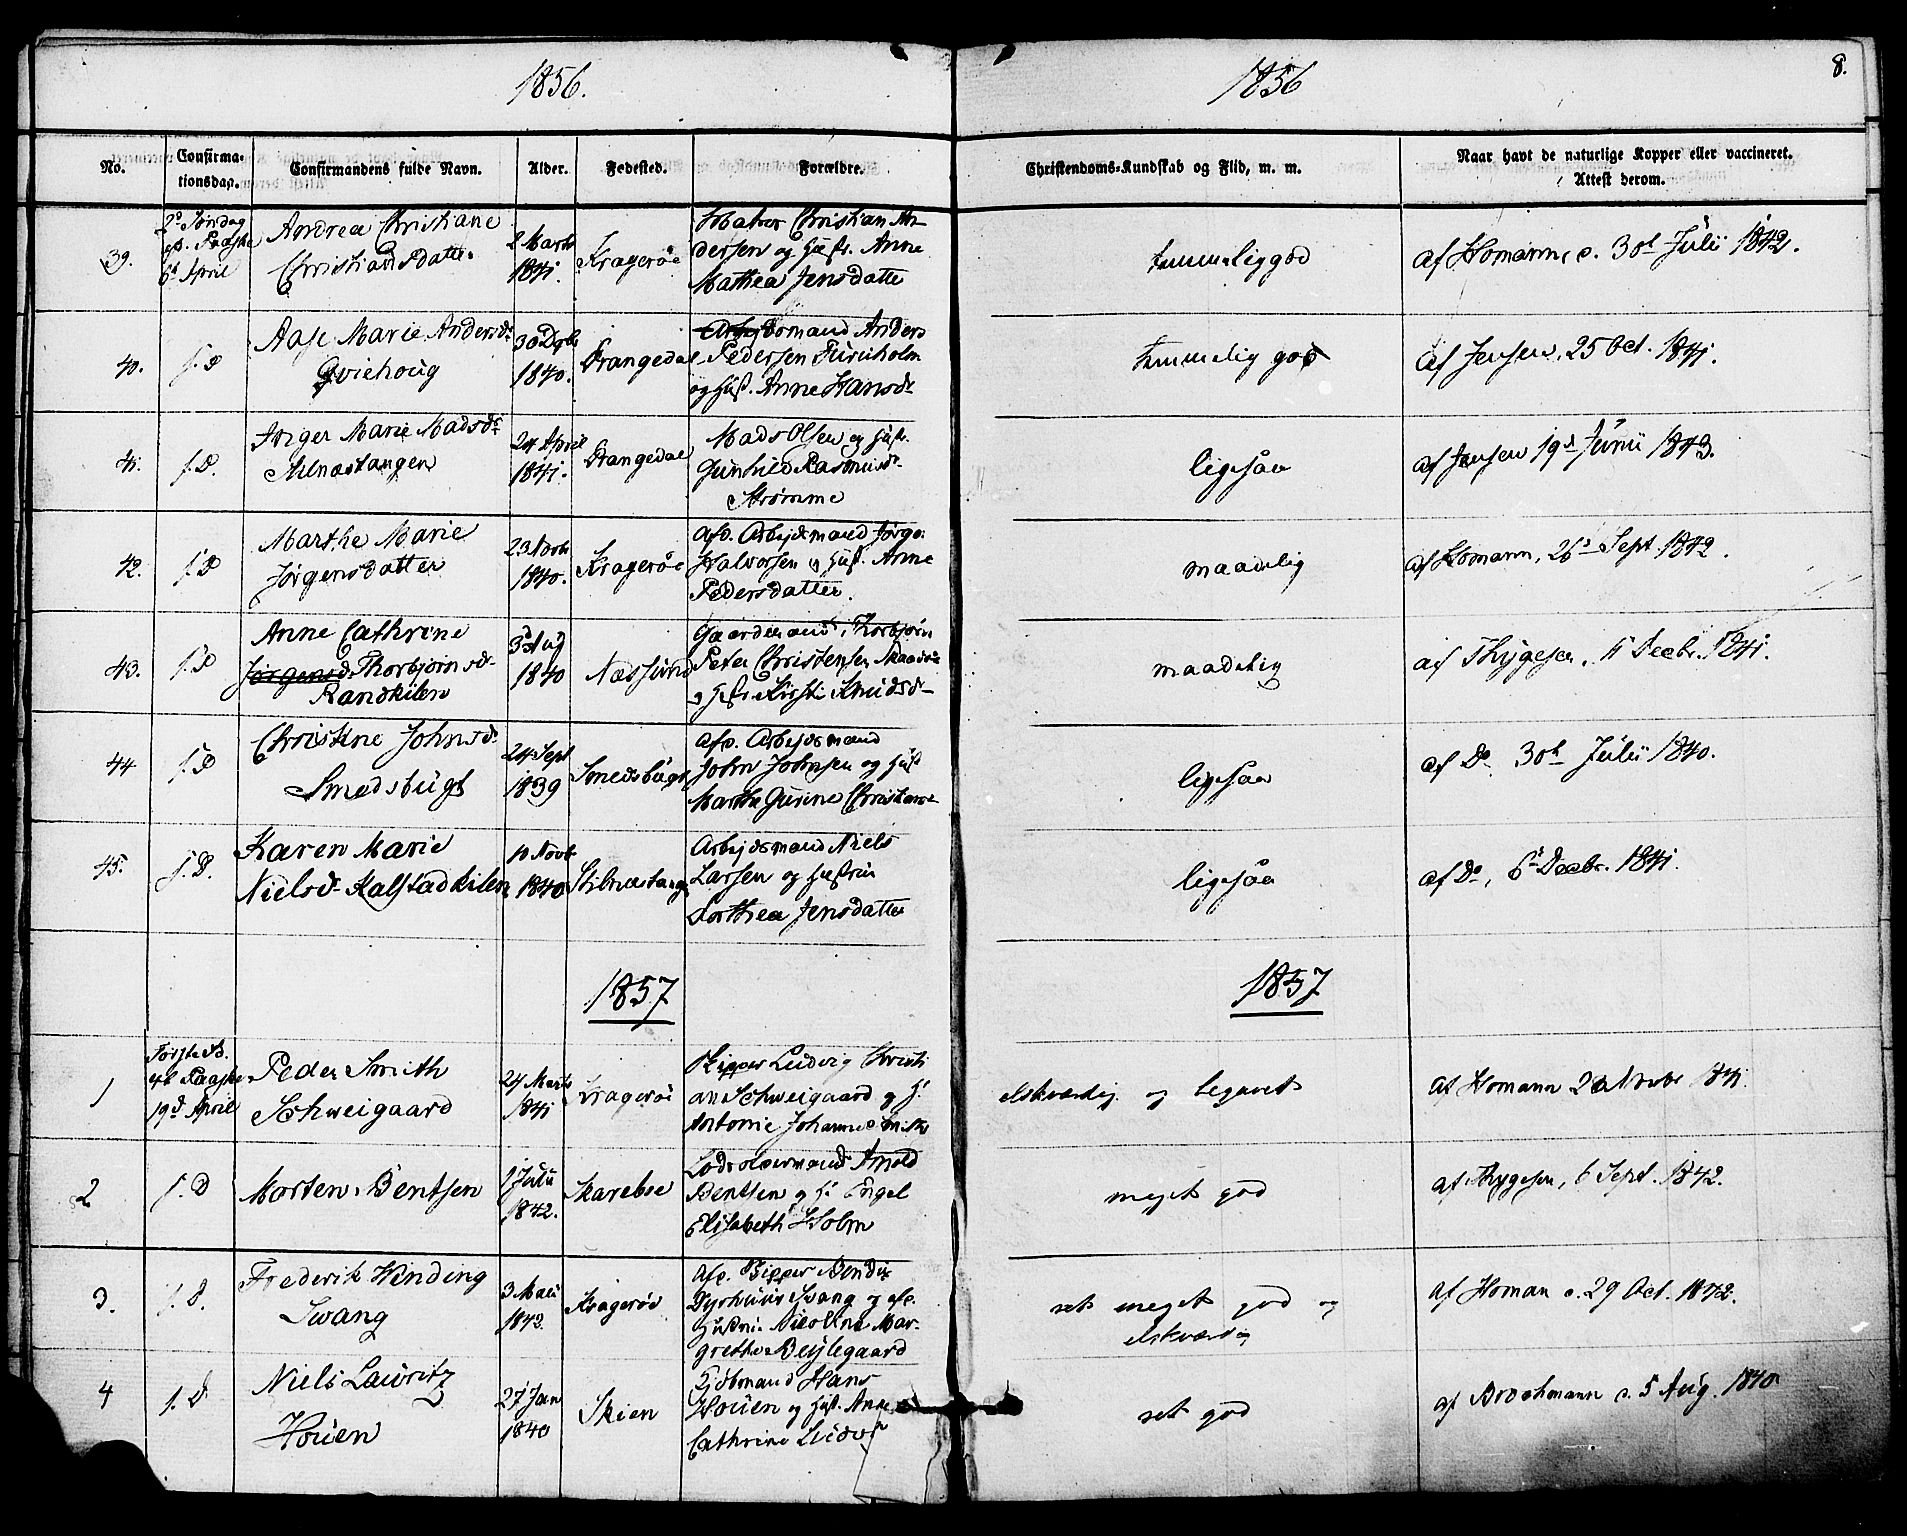 1856.
1856
8.
No.
Confirma-
tionsdag.
Confirmandens fulde Navn.
Alder.
Fødested.
Forældre.
Christendoms-Kundskab og Flid, m. m.
Naar havt de naturlige Kopper eller vaccineret.
Attest derom.
39.
2d Søndag
eft. Paaske
6t April
Andrea Christiane
Christiansdatter
2 Marts
1841.
Kragerøe
Christian An-
dersen og Hust. Anne
Mathea Jensdatter
temmelig god
af Homann, d. 30t Julii 1842.
40.
s. D
Aase Marie Andersd.
Qviehoug
1840.
Drangedal
Anders
Pedersen Furuholm
og Hust. Anne Hansd.
temmelig god
af Jensen, 25 Oct. 1841.
41.
s. D.
Inger Marie Madsd.
Stilnæstangen
24 April
1841.
Drangedal
Mads Olsen og Hust.
Gunhild Rasmusd.
Strømme
ligesaa
af Jensen 19d Junii 1843.
42.
s. D
Marthe Marie
Jørgensdatter
23 Novb
1840.
Kragerøe
afd. Arbejdsmand Jørgen
Halvorsen og Hust. Anne
Pedersdatter.
maadelig
af Homann, 26d Sept. 1842.
43.
s. D
Anne Cathrine
Jørgensd. Thorbjørnsd.
Randkilen
3d Aug
1840
Næssund
Gaardmand Thorbjørn
Peter Christensen
og Hust. Kirsti Knudsd.
maadelig
af Thygesen, 11 Decbr. 1841.
44
s. D
Christine Johnsd.
Smedsbugt
24 Sept
1839
Smedsbugt
afd. Arbejdsmand
John Johnsen og Hust
Marthe Gurine
ligesaa
af Do. 30t Julii 1840.
45.
s. D.
Karen Marie
Nielsd. Kalstadkilen
10 Novb
1840
Stilnæstangen
Arbejdsmand Niels
Larsen og Hustru
Dorthea Jensdatter
ligesaa
af Do, 6t Decbr. 1841.
1857
1857
1
Paaske
19d April
Peder Smith
Schweigaard
24 Marts
1841
Kragerøe
Skipper Ludvig Christi
an Schweigaard og H.
Antonie Johanne Smith
elskværdig og begavet
af Homann 1841.
2
s. D
Morten Bentsen
2 Julii
1842.
Skareboe
Lodsoldermand Arnold
Bentsen og H. Engel
Elisabeth Holm
meget god
af Thygesen, 6 Sept. 1842.
3.
s. D.
Frederik Winding
Swang
3 Mai
1842.
Kragerøe
Afd. Skipper
Swang og afd.
Hustru Nicoline Mar-
grethe Bejlegaard
ret meget god og
elskværdig
af Homan d. 29 Oct. 1842.
4
s. D.
Niels Lauritz
Houen
27 Jan
1840
Skien
Hans
Houen og Hust. Anne
Cathrine
ret god
af Brochmann d. 5 Aug. 1840